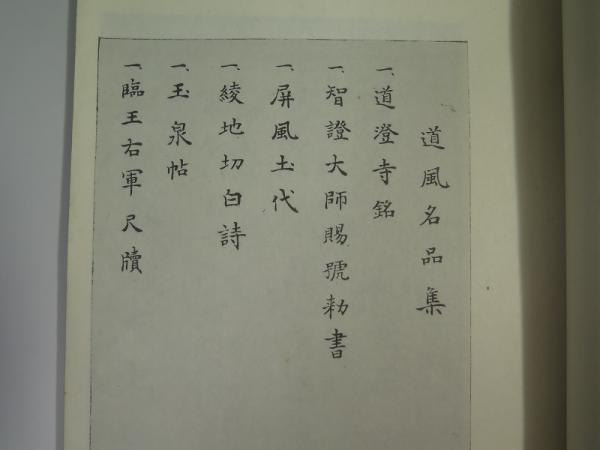 道風名品集
一、道澄寺銘
一、智證大師賜號勅書
一、屏風土代
一、綾地切白詩
一、玉泉帖
一、臨王右軍尺牘